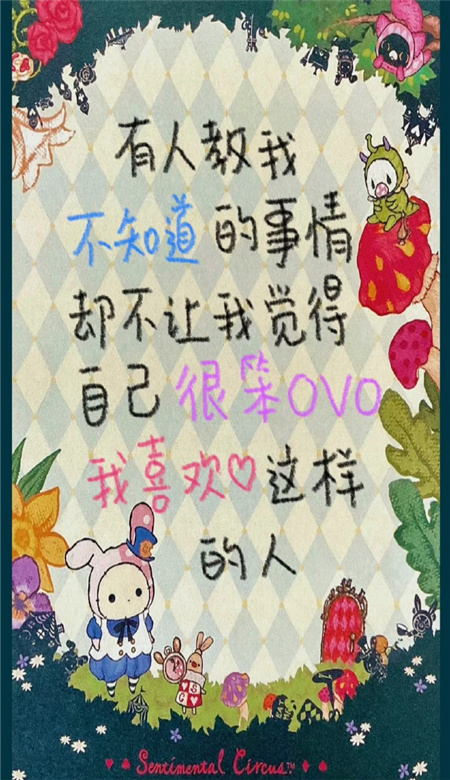 有人教我
不知道的事情
却不让我觉得
自己很笨OVO
我喜欢♡这样
的人
Sentimental Circus™